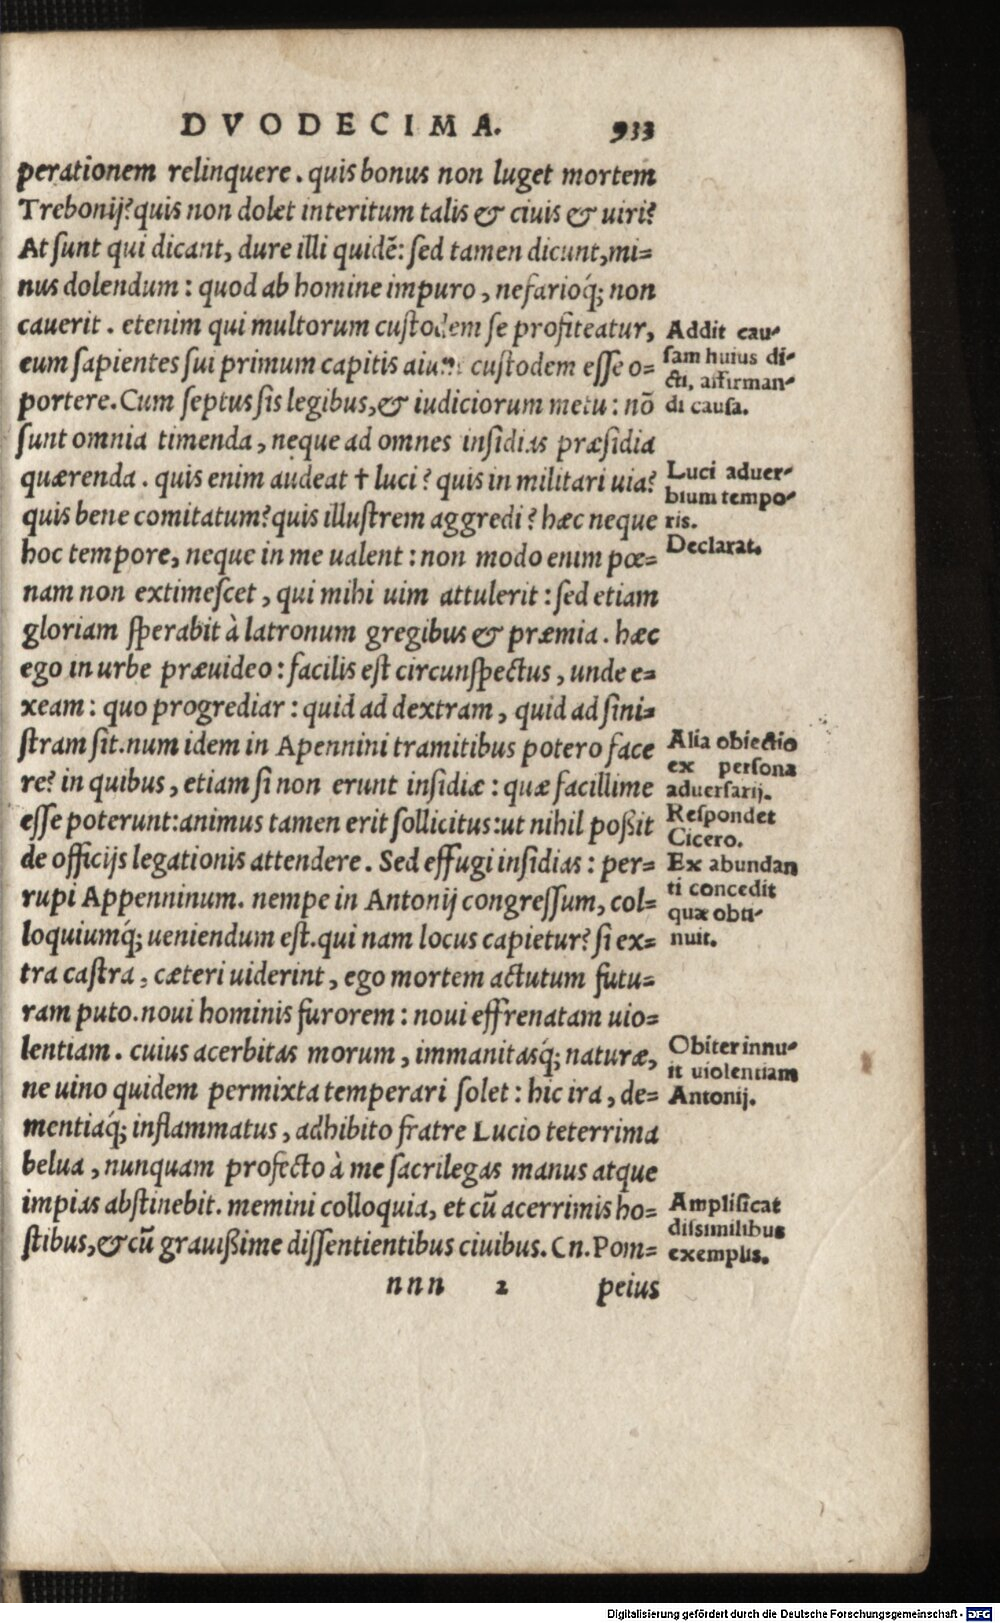 DVODECIMA. 933
perationem relinquere. quis bonus non luget mortem
Trebonij? quis non dolet interitum talis & ciuis & uiri?
At sunt qui dicant, dure illi quidē: sed tamen dicunt, mi=
nus dolendum: quod ab homine impuro, nefarioq́; non
cauerit. etenim qui multorum custodem se profiteatur,
eum sapientes sui primum capitis aiunt custodem esse o=
portere. Cum septus sis legibus, & iudiciorum metu: nō
sunt omnia timenda, neque ad omnes insidias præsidia
quærenda. quis enim audeat † luci? quis in militari uia?
quis bene comitatum? quis illustrem aggredi? hæc neque
hoc tempore, neque in me ualent: non modo enim pœ=
nam non extimescet, qui mihi uim attulerit: sed etiam
gloriam sperabit à latronum gregibus & præmia. hæc
ego in urbe præuideo: facilis est circunspectus, unde e=
xeam: quo progrediar: quid ad dextram, quid ad sini=
stram sit. num idem in Apennini tramitibus potero face
re? in quibus, etiam si non erunt insidiæ: quæ facillime
esse poterunt: animus tamen erit sollicitus: ut nihil poßit
de officijs legationis attendere. Sed effugi insidias: per=
rupi Appenninum. nempe in Antonij congressum, col=
loquiumq́; ueniendum est. qui nam locus capietur? si ex=
tra castra, cæteri uiderint, ego mortem actutum futu=
ram puto. noui hominis furorem: noui effrenatam uio=
lentiam. cuius acerbitas morum, immanitasq́; naturæ,
ne uino quidem permixta temperari solet: hic ira, de=
mentiaq́; inflammatus, adhibito fratre Lucio teterrima
belua, nunquam profecto à me sacrilegas manus atque
impias abstinebit. memini colloquia, et cū acerrimis ho=
stibus, & cū grauißime dissentientibus ciuibus. Cn. Pom=
nnn 2 peius
Addit cau-
sam huius di-
cti, affirman-
di causa.
Luci aduer-
bium tempo-
ris.
Declarat.
Alia obiectio
ex persona
aduersarij.
Respondet
Cicero.
Ex abundan
ti concedit
quæ obti-
nuit.
Obiter innu-
it uiolentiam
Antonij.
Amplificat
dissimilibus
exemplis.
Digitalisierung gefördert durch die Deutsche Forschungsgemeinschaft - DFG